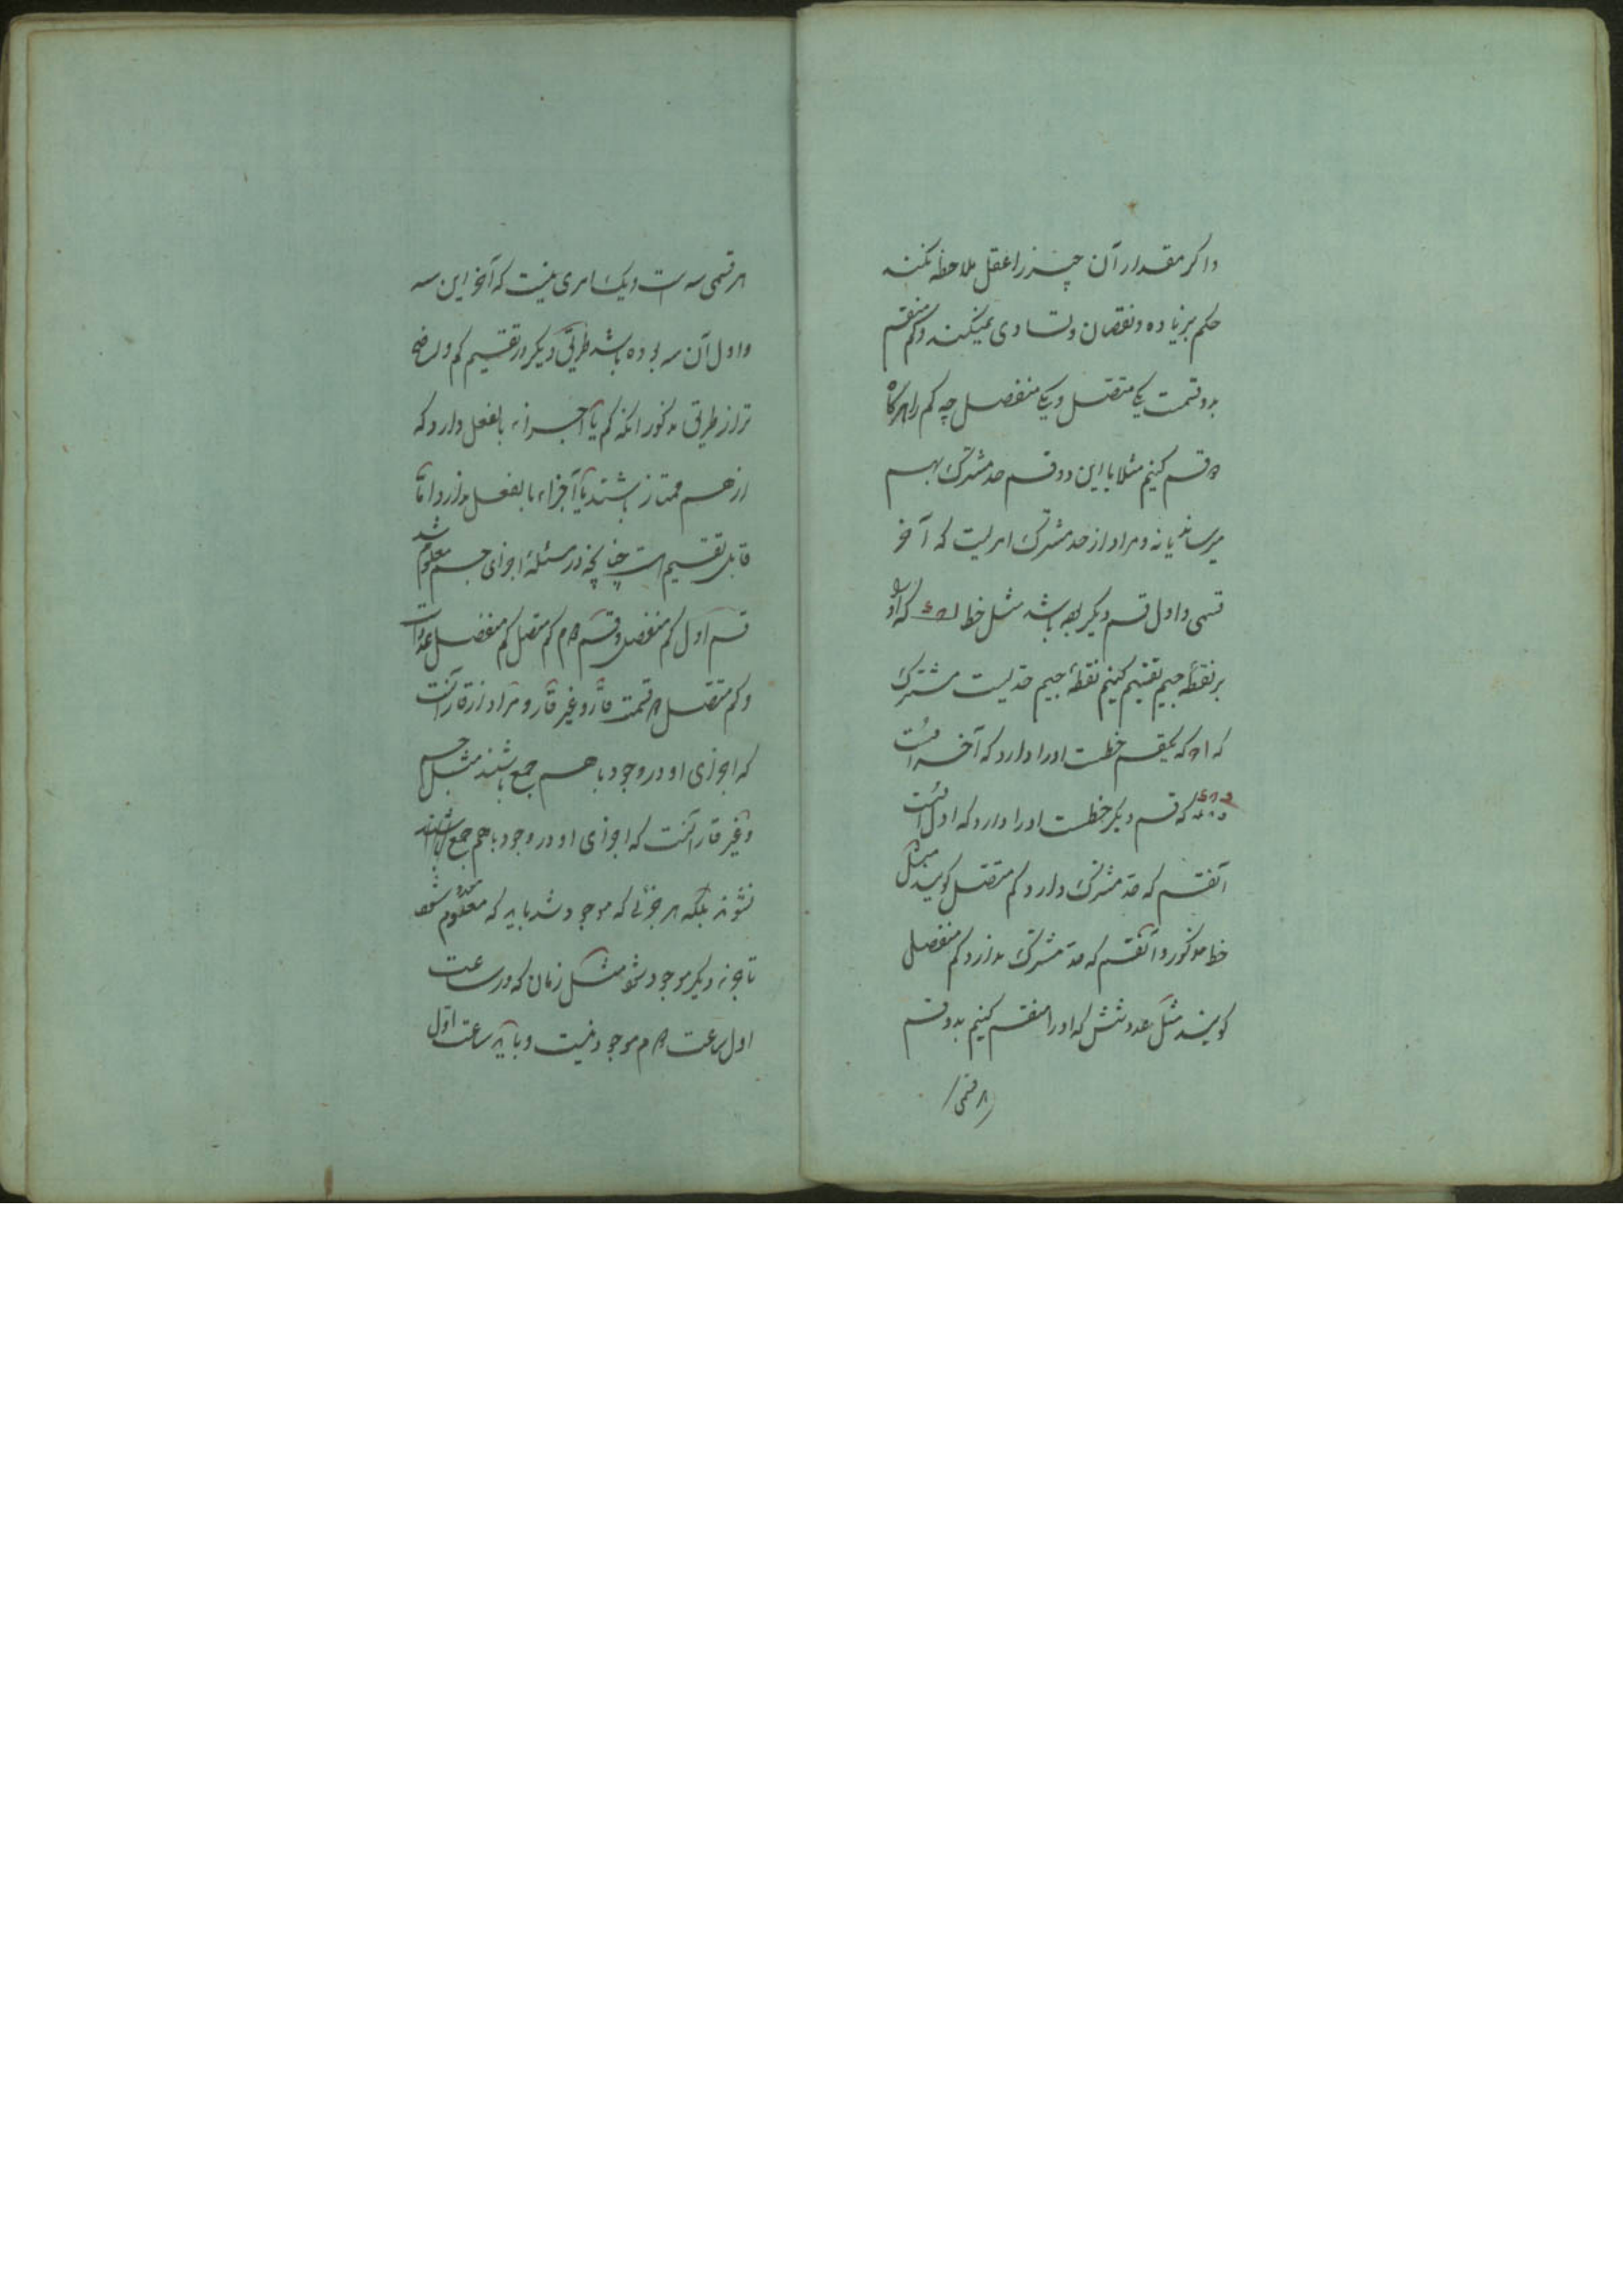 واکر مقدار آن چیز را عقل ملاحظه نکند
حکم بزیاده و نقصان و تساوی نمیکند و کم منقسم
بدو قسمت یکی متصل و یکی منفصل چه کم را هرکاه
۲ قسم کنیم مثلا یا این دو قسم حد مشترک بهم
میرسانند یا نه و مراد از حد مشترک امریست که آخر
قسمی و اول قسم دیکر بوده باشد مثل خط که او را
بر نقطهٔ جیم تقسیم کنیم نقطهٔ جیم حدیست مشترک
که اج که یکقسم خطست او را دارد که آخر اوست
که قسم دیکر خطست او را دارد که اول اوست
آنقسم که حد مشترک دارد کم متصل کویند مثل
خط مذکور و آنقسم که حد مشترک ندارد کم منفصل
کویند مثل عدد شش که او را منقسم کنیم بدو قسم
هر قسمی
هر قسمی سه است و یک امری نیست که آخر این سه
و اول آن سه بوده باشد طریق دیکر در تقسیم کم واضح
تر از طریق مذکور انکه کم یا اجزاء بالفعل دارد که
از هم ممتاز باشند یا اجزاء بالفعل ندارد اما
قابل تقسیم است چنانچه در مسئلهٔ اجزای جسم معلوم شد
قسم اول کم منفصل و قسم ۲م کم متصل کم منفصل عدد است
و کم متصل ۲ قسمت قار و غیر قار و مراد از قار آنست
که اجزای او در وجود با هم جمع باشند مثل جسم
و غیر قار آنست که اجزای او در وجود باهم جمع
نشوند بلکه هر جزئی که موجود شد باید که معدوم شود
تا جزء دیکر موجود شود مثل زمان که در ساعت
اول ساعت ۲م موجود نیست و باید ساعت اول